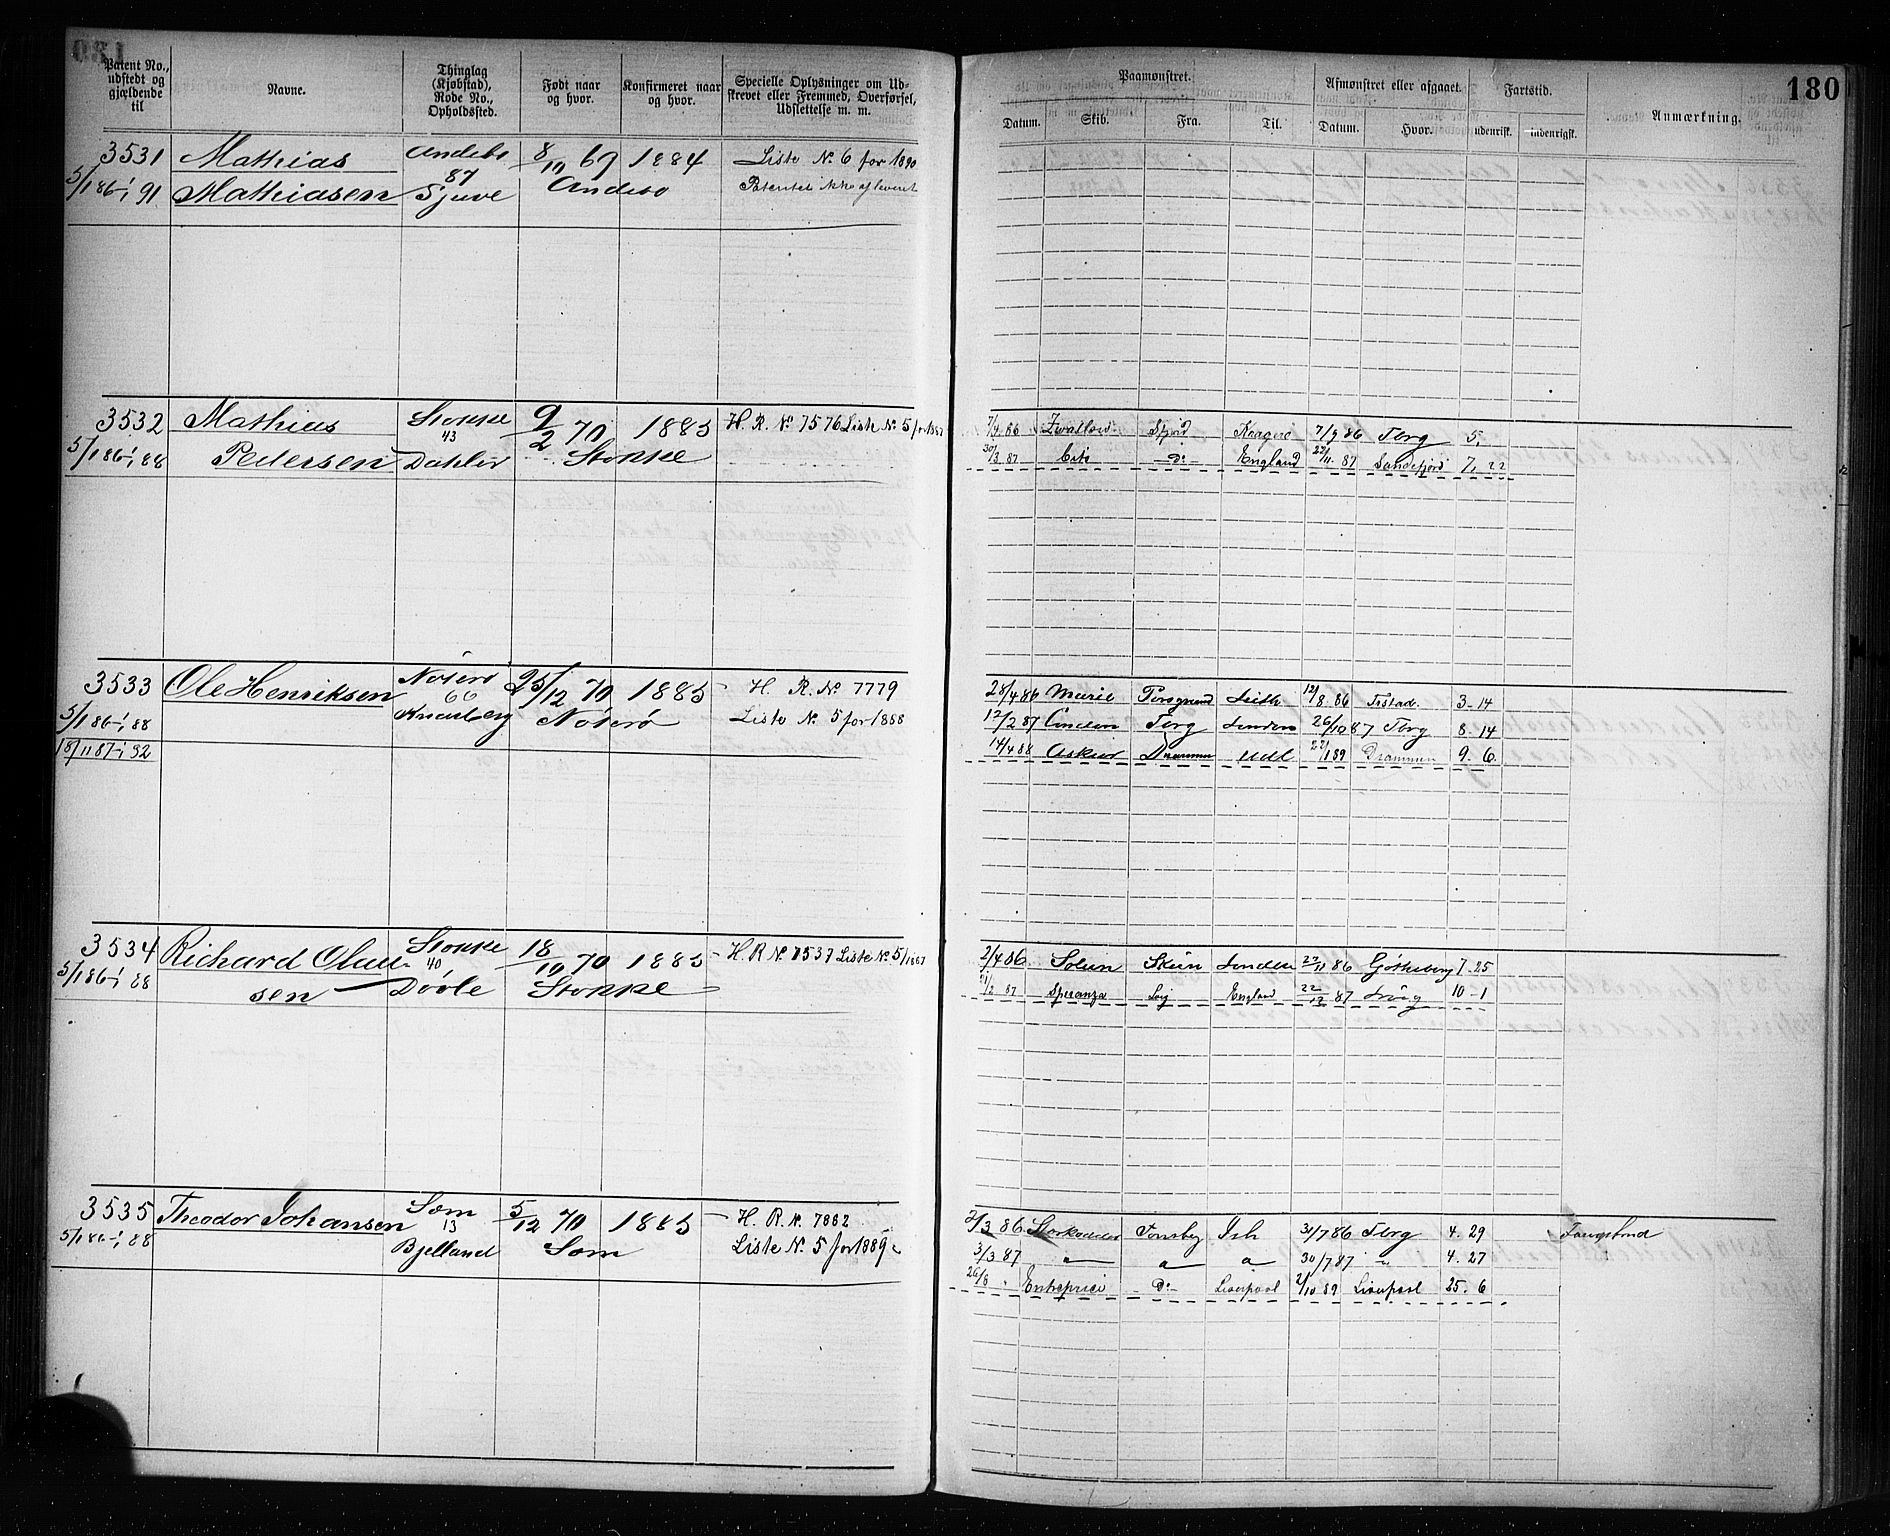 180
Patent No., udstedt og gjældende til
Navne.
Thinglag (Kjøbstad), Rode No., Opholdssted.
Født naar og hvor.
Konfirmeret naar og hvor.
Specielle Oplysninger om Udskrevet eller Fremmed, Overførsel, Udslettelse m. m.
Paamønstret.
Afmønstret eller afgaaet.
Fartstid.
Anmærkning.
Datum. Skib. Fra. Til. Datum. Hvor. udenrigsk. indenrigsk.
3531 Mathias Andebo 8/10 69 1884 Liste No 6 for 1890
5/1 86-1/1 91 Mathiasen 87 Gjuve Andebo Patentet ikke afleveret
3532 Mathias Stokke 9/2 70 1885 H. R. No 7576 Liste No 5 for 1887
5/1 86-1/1 88 Pedersen 43 Dahler Stokke
7/4 86 Fjord Kragerø 7/9 86 Tbrg 5,
30/3 87 Do England 22/11 87 Sandefjord 7, 22
3533 Ole Henriksen Nøterø 25/12 70 1885 H. R. No 7779
5/1 86-1/1 88 66 Knarberg Nøterø Liste No 5 for 1888
18/11 87-1/1 92
28/4 86 Marie Porsgrund Leith 12/8 86 Frstad. 3-14
12/2 87 Tbrg London 26/10 87 Tbrg 8-14
14/4 88 Askur Drammen Udl 22/1 89 Drammen 9. 6.
3534 Richard Olau- Stokke 18/10 70 1885 H. R No 7537 Liste No 5/1887
5/1 86-1/1 88 sen 40 Døvle Stokke
2/4 86 Skien London 22/11 86 Gøtheborg 7-25
21/2 87 Speranza England 22/12 87 10-1
3535 Theodor Johansen Sæm 5/12 70 1885 H. R. No. 7882
5/1 86-1/1 88 13 Bjelland Sæm Liste No. 5 for 1889
2/3 86 Tønsberg Ish 31/7 86 Tbrg 4. 29 Fangstmd
3/3 87 " " " 30/7 87 " 4. 27
26/8 " Do Liverpool 2/10 89 Liverpool 25. 6